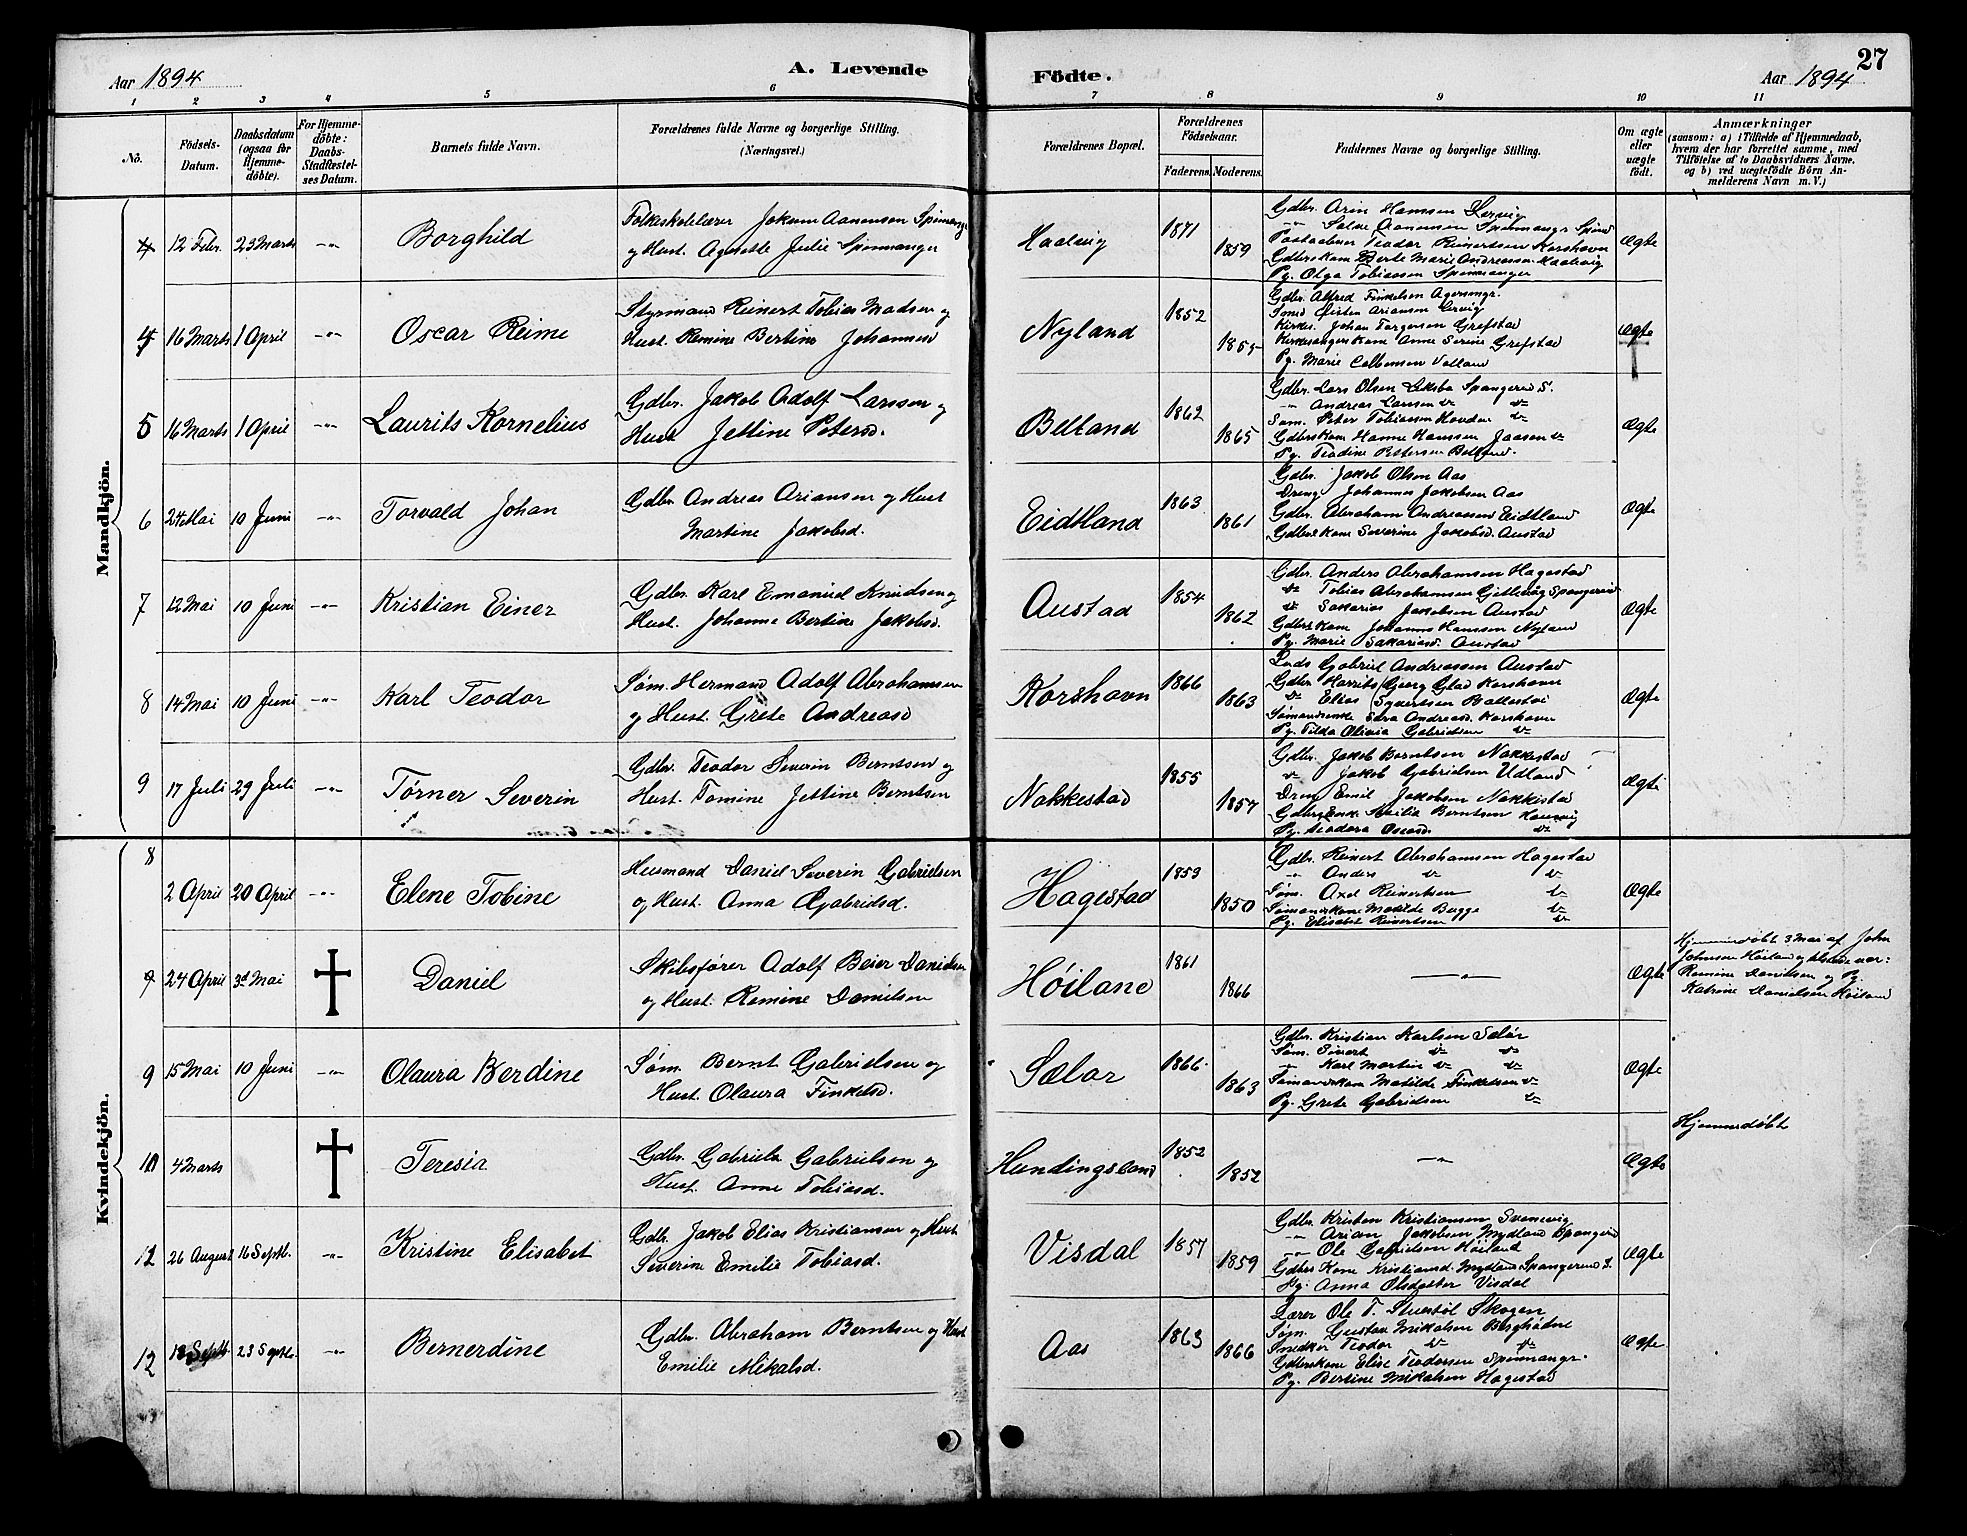 Aar 1894
A. Levende
Födte.
Aar 1894
27
1 2 3 4 5 6 7 8 9 10 11
No.
Födsels-Datum.
Daabsdatum (ogsaa for Hjemme-döbte).
For Hjemme-döbte: Daabs-Stadfæstel-ses Datum.
Barnets fulde Navn.
Forældrenes fulde Navne og borgerlige Stilling.
(Næringsvei.)
Forældrenes Bopæl.
Forældrenes Födselsaar.
Faderens. Moderens.
Faddernes Navne og borgerlige Stilling.
Om ægte eller uægte födt.
Anmærkninger
(saasom: a) i Tilfælde af Hjemmedaab,
hvem der har forrettet samme, med
Tilföielse af to Daabsvidners Navne.
og b) ved uegtefödte Börn An-
melderens Navn m. V.)
Mandkjön.
4 12 Febr. 23 Marts -"- Borghild
Folkeskolelærer Jokum Aanensen Spinnangr
og Hust. Agnette Julie Spinnanger
Haalvig 1871 1859
Gdbr. Arin Hansen Lervig
Spinnangr Spind
Postaabner Teodor Reinertsen Korshavn
Gdbrskone Berte Marie Andreassen Haalvig
Pg. Olga Tobiassen Spinnanger
Ægte
4 16 Marts 1 April -"- Oscar Reime
Styrmand Reinert Tobias Madsen og
Hust. Remine Bertine Johannesd
Nyland 1852 1855
Gdbr. Alfred Finkelsen Agersmgr.
Smed Kristen Ariansen Lervig
Kirkes. Johan Torgersen Grefstad
Kirkesangers Kone Anne Serine Grefstad
Pg. Marie Velland
Ægte
5 16 Marts 1 April -"- Laurits Kornelius
Gdbr. Jakob Adolf Larssen og
Hust Jettine Petersd.
Belland 1862 1865
Gdbr. Lars Olsen Spangereid S.
-"- Andreas Larssen do do
Søm. Peter Tobiassen do
Gdbrskone Hanne Hanssen Jaasen do
Pg. Teodine Pettersen Belland.
Ægte
6 24 Mai 10 Juni -"- Torvald Johan
Gdbr Andreas Ariansen og Hust
Martine Jakobsd.
Eidtland 1863 1861
Gdbr. Jakob Olsen Aas
Dreng Johannes Jakobsen Aas
Gdbr. Abraham Andreassen Eidtland
Gdbrskone Severine Jakobsd. Austad
Ægte
7 12 Mai 10 Juni -"- Kristian Einer
Gdbr. Karl Emanuel Knudsen og
Hust. Johanne Bertine Jakobsd.
Austad 1854 1862
Gdbr. Anders Abrahamsen Hagestad
do Tobias Abrahamsen Gitlevig Spangereid
do Sakarias Jakobsen Austad
Gdbrskone Johanne Hanssen Nyland
Pg. Marie Sakariasd. Austad
Ægte
8 14 Mai 10 Juni -"- Karl Teodor
Søm. Hermand Adolf Abrahamsen
og Hust. Grete Andreasd
Korshavn 1866 1863
Lods Gabriel Andreassen Austad
Gdbr. Georg Glad Korshavn
do Elias Syvertsen Ballestøi
Sømandsenke Sara Andreasd. Korshavn
Pg. Tilda Olivia Gabrielsen do
Ægte
9 17 Juli 29 Juli -"- Tørner Severin
Gdbr. Teodor Severin Berntsen og
Hust. Tomine Jettine Berntsen
Nakkestad 1855 1857
Gdbr. Jakob Berntsen Nakkestad
do Jakob Gabrielsen Udland
Dreng Emil Jakobsen Nakkestad
Berntsen
Pg. Teodora do
Ægte
Kvindekjön.
8 2 April 20 April -"- Elene Tobine
Husmand Daniel Severin Gabrielsen
og Hust. Anna Gabrielsd.
Hagestad 1853 1850
Gdbr. Reinert Abrahamsen Hagestad
-"- Anders do do
Søm. Axel Reinertsen do
Sømandskone Matilde Bugge do
Pg. Elisabet Reinertsen do
Ægte
9 24 April 3d Mai Daniel
Skibsfører Adolf Beier Danielsen
og Hust. Remine Danielsen
Höiland 1861 1866
-"-
Ægte
Hjemmedøbt 3 Mai af John
Johnsen Höiland
Remine Danielsen og Pg.
Katrine Danielsen Höiland
9 15 Mai 10 Juni -"- Olaura Berdine
Søm. Bernt Gabrielsen og
Hust. Olaura Finkelsd.
Sælør 1866 1863
Gdbr. Kristian Karlsen Sælør
Søm. Sivert do do
-"- Karl Martin do do
Sømandskone Matilde Finkelsen do
Pg. Grete Gabrielsen do
Ægte
10 4 Marts Teresia
Gdbr. Gabriel Gabrielsen og
Hust. Anne Tobiasd.
Hundingsland 1852 1852
-"-
Ægte
Hjemmedøbt
12 26 August 16 Septb. -"- Kristine Elisabet
Gdbr. Jakob Elias Kristiansen og Hust
Severine Emilie Tobiasd.
Visdal 1857 1859
Gdbr. Kristen Kristiansen Svenevig
-"- Arian Jakobsen Mydland Spangereid
-"- Ole Gabrielsen Höiland
Gdbrs Kone Kristiansd. Mydland Spangereid S.
Pg. Anna Olsdatter Visdal
Ægte
12 18 Septb. 23 Septb. -"- Bernerdine
Gdbr. Abraham Berntsen og Hust
Emilie Mikalsd.
Aas 1863 1866
Lærer Ole T. Stuestøl Skogen
Søm. Gustav Mikalsen
Snedker Teodor do do
Gdbrskone Elise Teodorsen Spinnangr.
Pg. Bertine Mikalsen Hagestad
Ægte